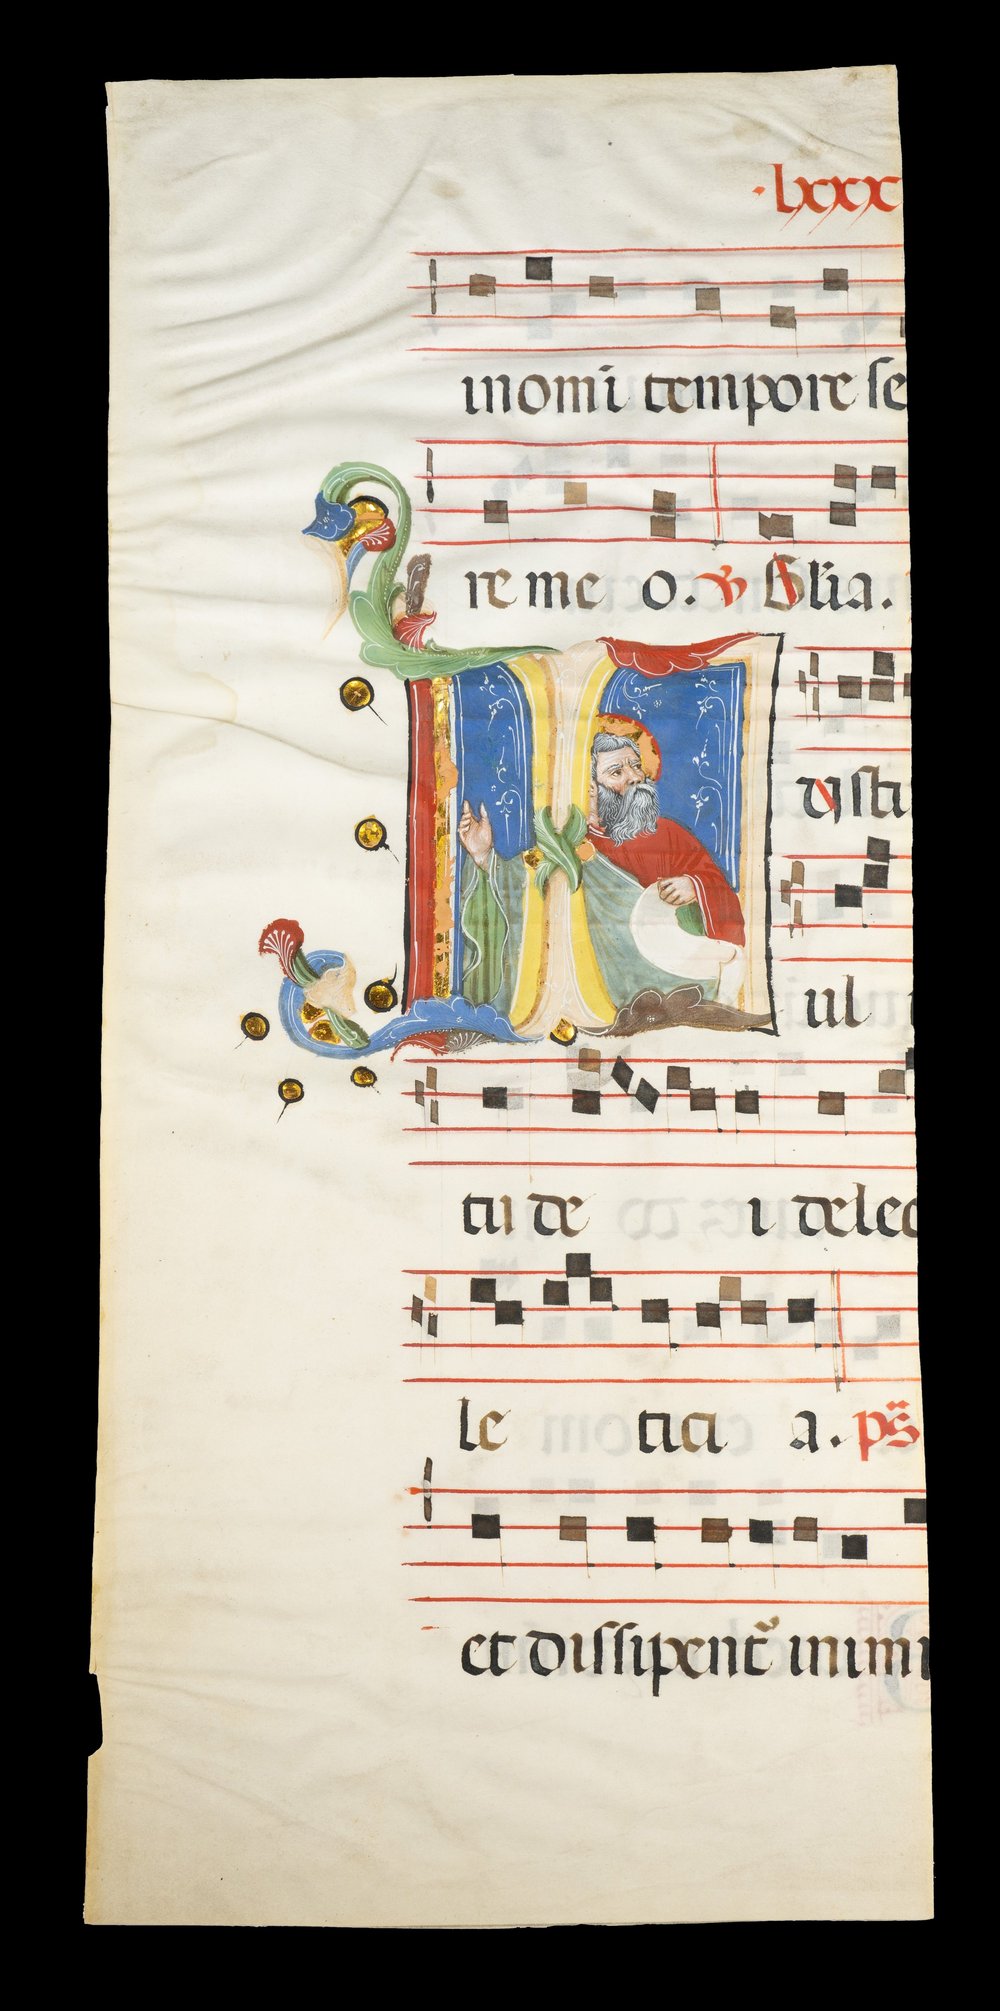 ·lxxx
in omī tempore se
re me o. ℣ Glia.
IUsti
ul
tu de i delec
le tici a. p̄s
et dissipent᷑ inimi